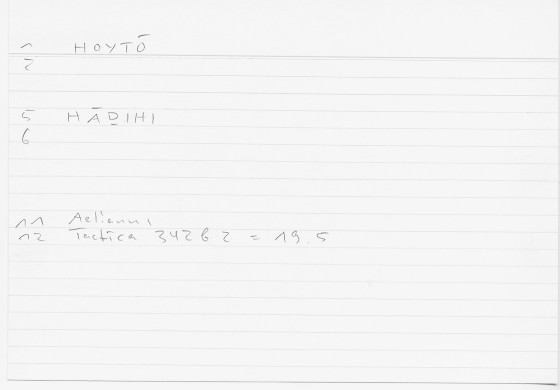 1 HOYTŌ
2
5 HĀḎIHI
6
11 Aelianus
12 Tactica 342 b 2 = 19.5